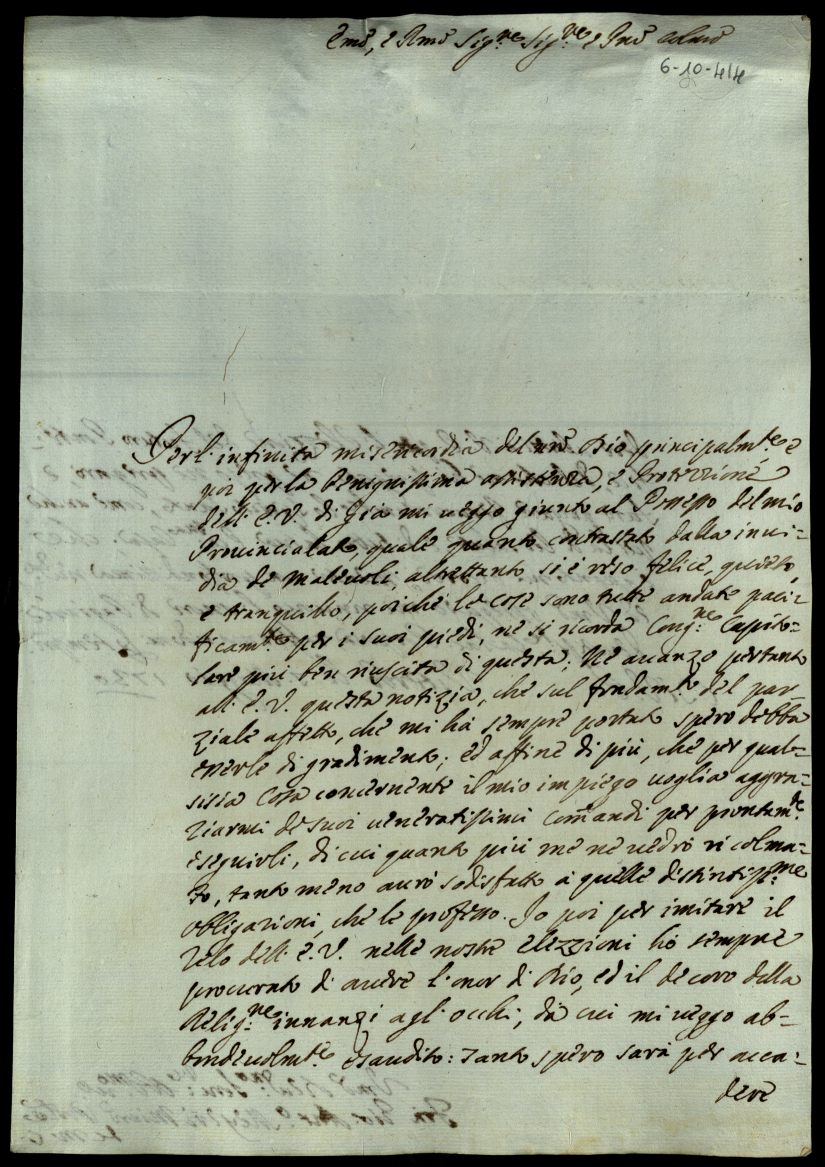 Emõ, e Rmõ Sig.re Sig.re e Pnẽ Colmõ
6-10-44
Per l'infinita misericordia del nrõ Dio principalm.te e
poi per la benignissima assistenza, e Protezzione
dell'E.V. di già mi veggo giunto al Possesso del mio
Provincialato, quale quanto contrastato dalla invi-
dia de malevoli, altrettanto si è reso felice, quieto,
e tranquillo, poiche le cose sono tutte andate paci-
ficam.te per i suoi piedi, ne si ricorda Cong.ne Capito-
lare più ben riuscita di questa; Ne avanzo pertanto
all'E.V. questa notizia, che sul fondam.to del par-
ziale affetto, che mi hà sempre portato spero debba
esserle di gradimento; ed affine di più, che per qual-
sisia cosa concernente il mio impiego voglia aggra-
ziarmi de suoi veneratissimi comãndi per prontam.te
eseguirli, di cui quanto più me ne vedrò ricolma-
to, tanto meno avrò sodisfatto à quelle distintiss.me
obligazioni, che le professo. Io poi per imitare il
zelo dell'E.V. nelle nostre elezzioni hò sempre
procurato di avere l'onor di Dio, ed il decoro della
Relig.ne innanzi agl'occhi, da cui mi veggo ab-
bondevolm.te esaudito: Tanto spero sarà per acca-
dere